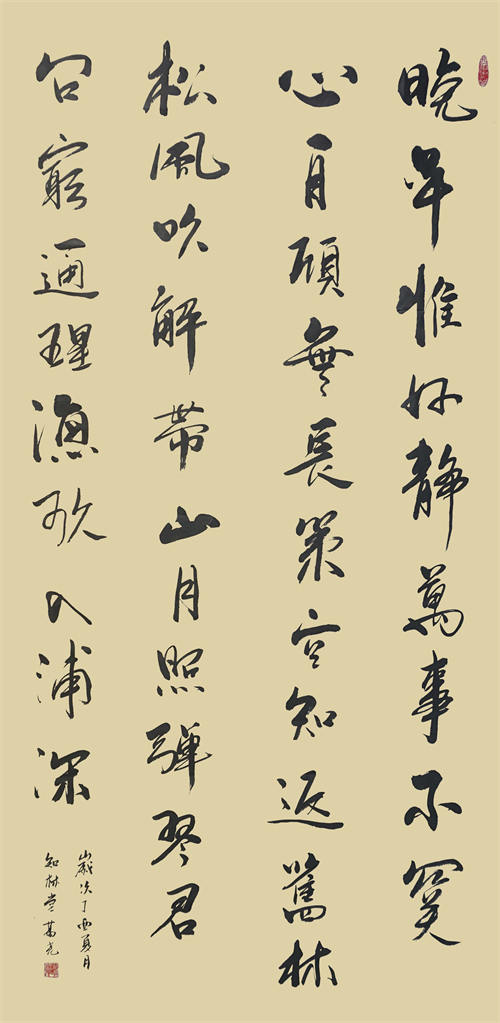 晚年惟好靜萬事不關
心自顧無長策空知返舊林
松風吹解帶山月照彈琴君
問窮通理漁歌入浦深
歲次丁酉夏月
知林堂